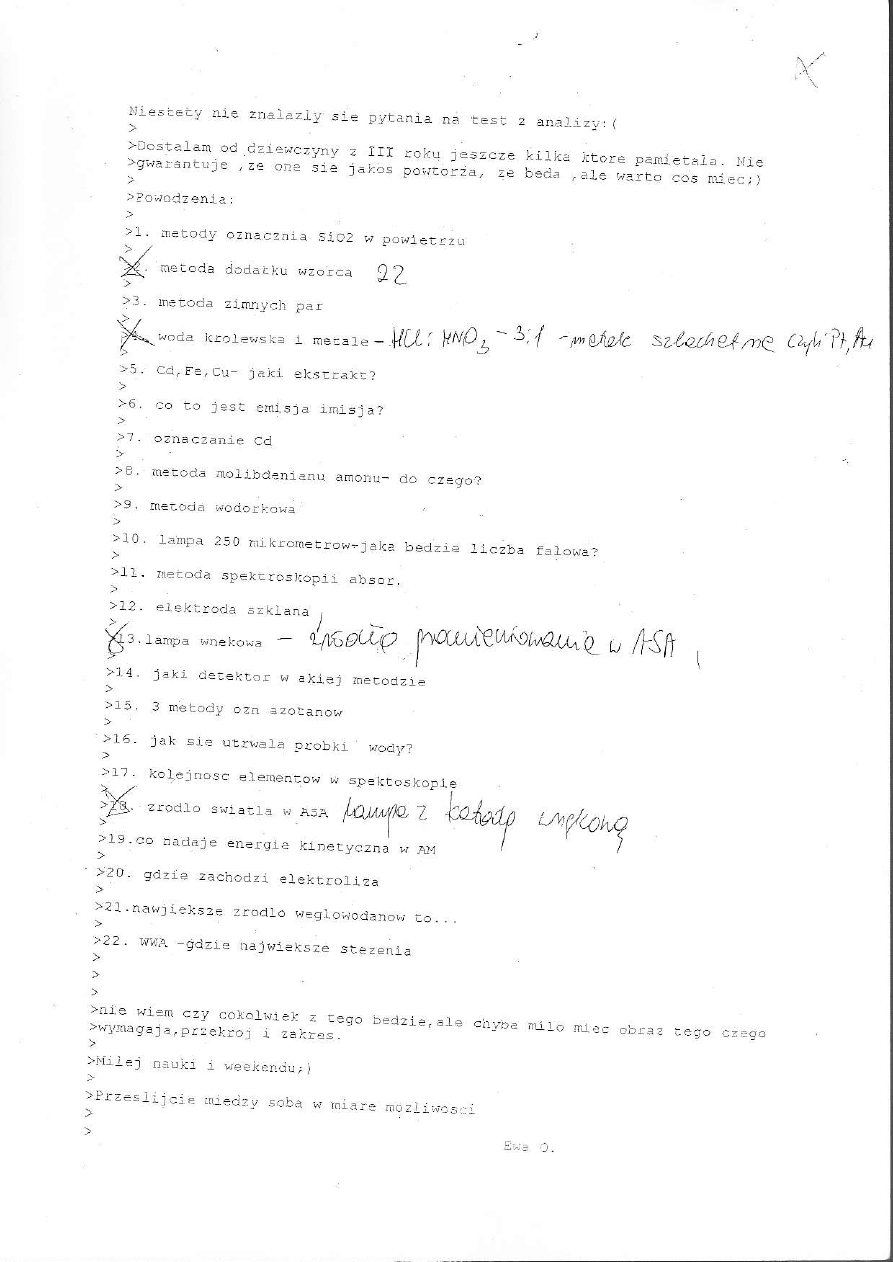 Niestety nie znalazly sie pytania na test z analizy:(
>
>Dostalam od dziewczyny z III roku jeszcze kilka ktore pamietala. Nie
>gwarantuje ,ze one sie jakos powtorza, ze beda ,ale warto cos miec;)
>
>Powodzenia:
>
>1. metody oznacznia SiO2 w powietrzu
>
>2. metoda dodatku wzorca 22
>
>3. metoda zimnych par
>
>4. woda krolewska i metale - HCl : HNO3 - 3:1 - metale szlachetne czyli Pt, Au
>
>5. Cd,Fe,Cu- jaki ekstrakt?
>
>6. co to jest emisja imisja?
>
>7. oznaczanie Cd
>
>8. metoda molibdenianu amonu- do czego?
>
>9. metoda wodorkowa
>
>10. lampa 250 mikrometrow-jaka bedzie liczba falowa?
>
>11. metoda spektroskopii absor.
>
>12. elektroda szklana
>
>13.lampa wnekowa - źródło promieniowania w ASA
>
>14. jaki detektor w akiej metodzie
>
>15. 3 metody ozn azotanow
>
>16. jak sie utrwala probki wody?
>
>17. kolejnosc elementow w spektoskopie
>
>18. zrodlo swiatla w ASA lampa z katodą wnękową
>
>19.co nadaje energie kinetyczna w AM
>
>20. gdzie zachodzi elektroliza
>
>21.nawjieksze zrodlo weglowodanow to...
>
>22. WWA -gdzie najwieksze stezenia
>
>
>
>nie wiem czy cokolwiek z tego bedzie,ale chyba milo miec obraz tego czego
>wymagaja,przekroj i zakres.
>
>Milej nauki i weekendu;)
>
>Przeslijcie miedzy soba w miare mozliwosci
>
>
Ewa O.